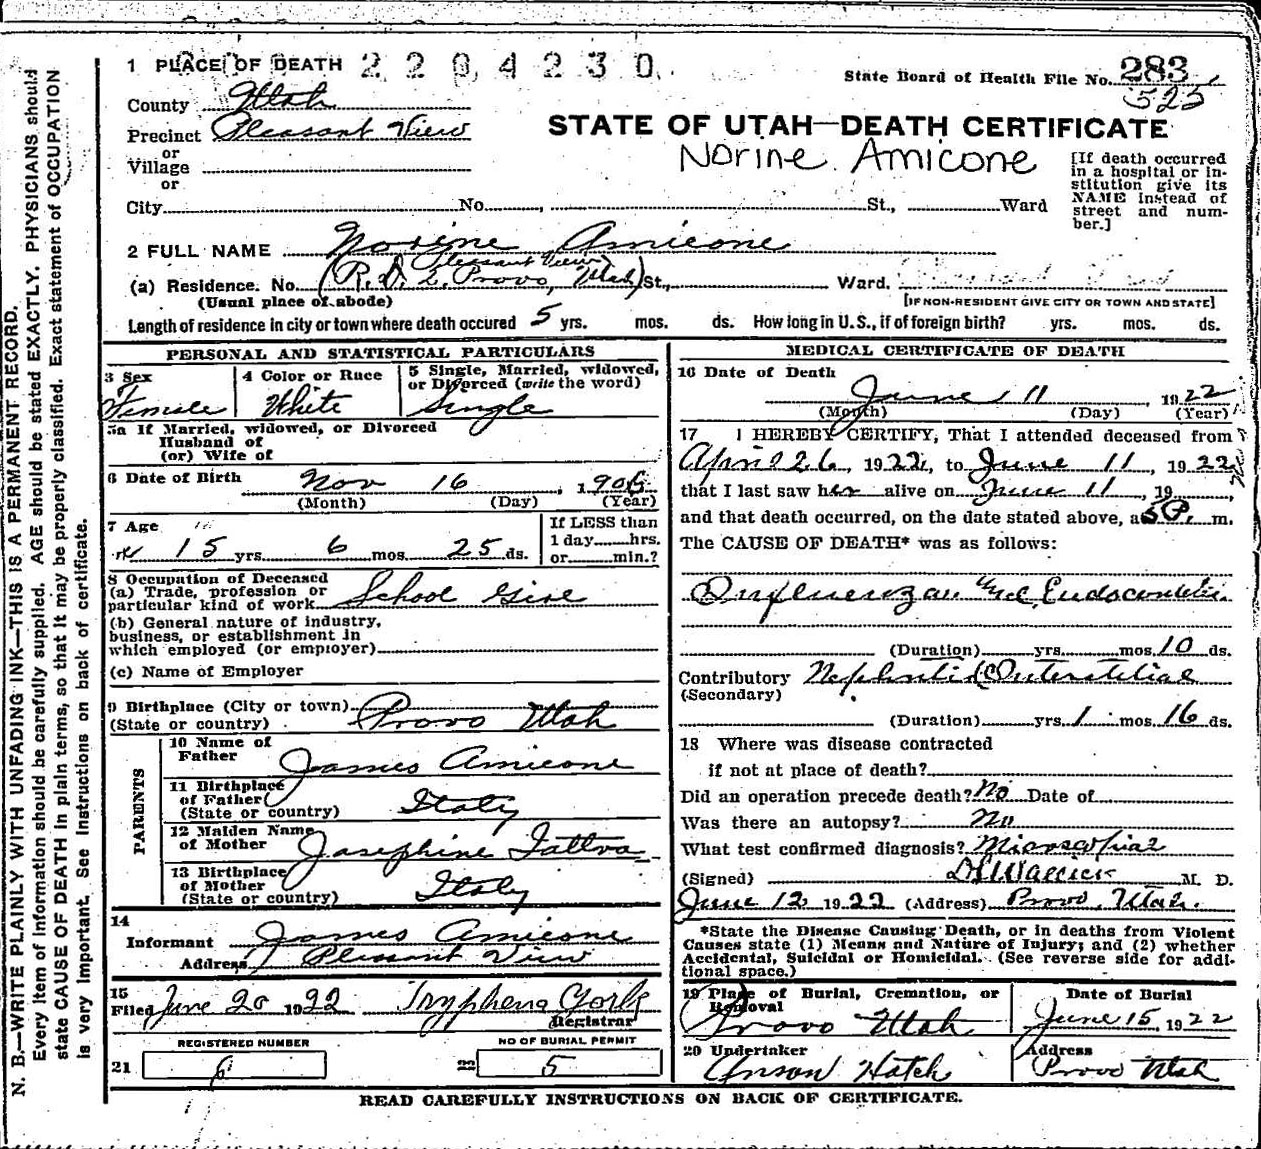 1 PLACE OF DEATH 2 2 0 4 2 3 0
State Board of Health File No. 283
525
County Utah
Precinct Pleasant View
or
Village
or
City No. , St., Ward
STATE OF UTAH—DEATH CERTIFICATE
Norine Amicone
[If death occurred
in a hospital or in-
stitution give its
NAME instead of
street and num-
ber.]
2 FULL NAME Norine Amicone
Pleasant View
(a) Residence. No. (R. D. 2. Provo, Utah) St., Ward.
(Usual place of abode) [IF NON-RESIDENT GIVE CITY OR TOWN AND STATE]
Length of residence in city or town where death occured 5 yrs. mos. ds. How long in U.S., if of foreign birth? yrs. mos. ds.
PERSONAL AND STATISTICAL PARTICULARS
3 Sex 4 Color or Race 5 Single, Married, widowed,
or Divorced (write the word)
Female White Single
5a If Married, widowed, or Divorced
Husband of
(or) Wife of
6 Date of Birth Nov 16, 1906
(Month) (Day) (Year)
7 Age If LESS than
15 yrs. 6 mos. 25 ds. 1 day hrs.
or min.?
8 Occupation of Deceased
(a) Trade, profession or
particular kind of work School Girl
(b) General nature of industry,
business, or establishment in
which employed (or employer)
(c) Name of Employer
9 Birthplace (City or town)
(State or country) Provo Utah
PARENTS
10 Name of
Father James Amicone
11 Birthplace
of Father
(State or country) Italy
12 Maiden Name
of Mother Josephine
13 Birthplace
of Mother
(State or country) Italy
14
Informant James Amicone
Address Pleasant View
15
Filed June 20 1922 Tryphena York
Registrar
REGISTERED NUMBER NO OF BURIAL PERMIT
21 6 22 5
MEDICAL CERTIFICATE OF DEATH
16 Date of Death
June 11, 1922
(Month) (Day) (Year)
17 I HEREBY CERTIFY, That I attended deceased from
April 26, 1922, to June 11, 1922
that I last saw her alive on June 11, 19 ,
and that death occurred, on the date stated above, a 5 P. m.
The CAUSE OF DEATH* was as follows:
Influenza Endocarditis
(Duration) yrs. mos. 10 ds.
Contributory Nephritis (Interstitial
(Secondary)
(Duration) yrs. 1 mos. 16 ds.
18 Where was disease contracted
if not at place of death?
Did an operation precede death? No Date of
Was there an autopsy? No
What test confirmed diagnosis? Microscopical
(Signed) M. D.
June 12 1922 (Address) Provo, Utah.
*State the Disease Causing Death, or in deaths from Violent
Causes state (1) Means and Nature of Injury; and (2) whether
Accidental, Suicidal or Homicidal. (See reverse side for addi-
tional space.)
19 Place of Burial, Cremation, or Date of Burial
Removal
Provo Utah June 15, 1922
20 Undertaker Address
Anson Hatch Provo Utah
READ CAREFULLY INSTRUCTIONS ON BACK OF CERTIFICATE.
N. B.—WRITE PLAINLY WITH UNFADING INK—THIS IS A PERMANENT RECORD.
Every item of information should be carefully supplied. AGE should be stated EXACTLY. PHYSICIANS should
state CAUSE OF DEATH in plain terms, so that it may be properly classified. Exact statement of OCCUPATION
is very important. See instructions on back of certificate.